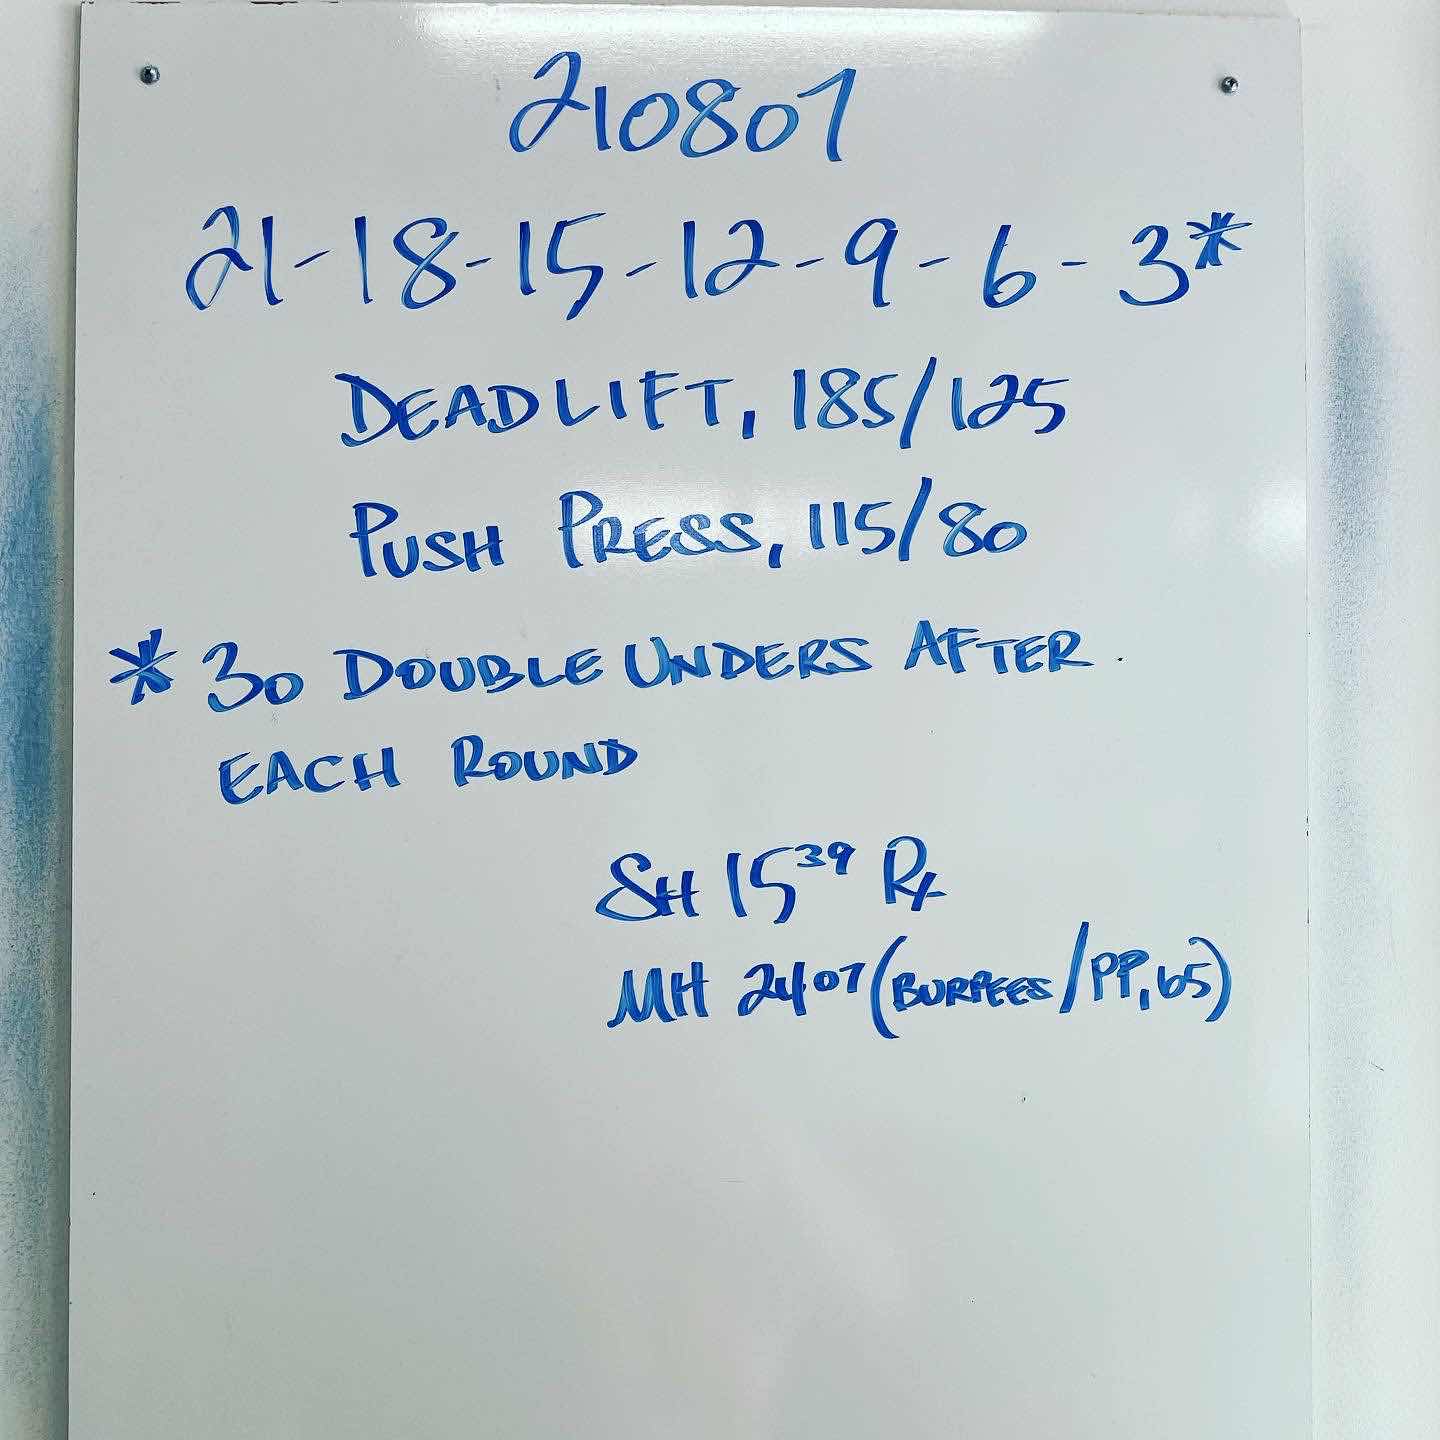 210807
21-18-15-12-9-6-3*
DEADLIFT, 185/125
PUSH PRESS, 115/80
* 30 DOUBLE UNDERS AFTER
EACH ROUND
SH 15³⁹ Rx
MH 24⁰⁷ (BURPEES/PP, 65)